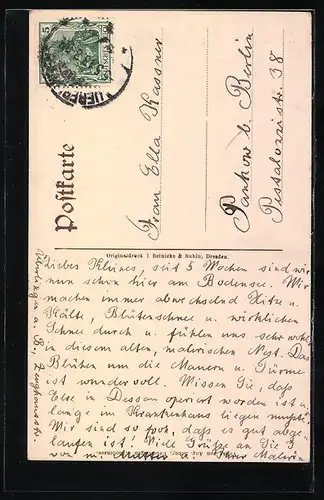 Postkarte
Frau Ella Kassner
Pankow b. Berlin
Pestalozzistr. 38
Originaldruck v. Reinicke & Rubin, Dresden.
Liebes Kleines, seit 5 Wochen sind wir
nun schon hier am Bodensee. Wir
machen immer abwechselnd Hitze u.
Kälte, Blütenschnee u. wirklichen
Schnee durch u. fühlen uns sehr wohl
in diesem alten, malerischen Nest. Das
Blühen um die Mauern u. Türme
ist wundervoll. Wissen Sie, daß
Else in Dessau operiert worden ist u.
lange im Krankenhaus liegen mußte.
Wir sind so froh, daß es gut abge-
laufen ist! Viele Grüße an Sie 3
von m. u. Ihrer Malerin
Überlingen a. B., Zeughausstr.